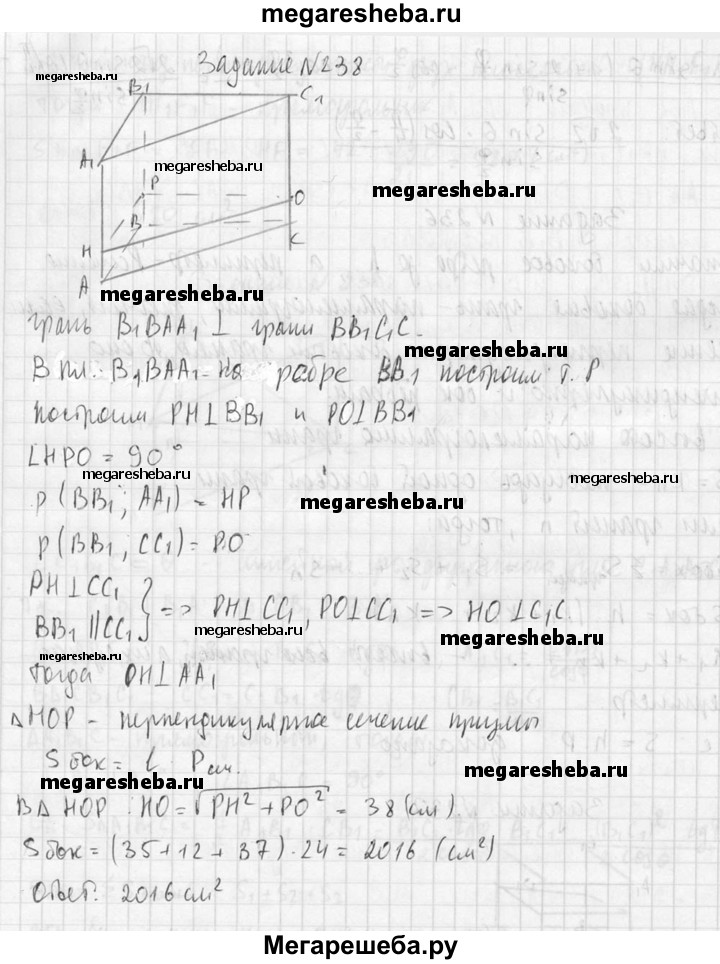 megaresheba.ru
Задание N238
megaresheba.ru
B1
C1
A1
megaresheba.ru
megaresheba.ru
P
O
B
C
H
A
megaresheba.ru
грань B1BAA1 ⊥ грани BB1C1C.
megaresheba.ru
В пл. B1BAA1 на ребре BB1 построим т. P
построим PH⊥BB1 и PO⊥BB1
∠HPO = 90°
megaresheba.ru
megaresheba.ru
ρ(BB1; AA1) = HP
megaresheba.ru
ρ(BB1; CC1) = PO
PH⊥CC1
BB1 || CC1 } => PH⊥CC1, PO⊥CC1 => HO⊥C1C.
megaresheba.ru
megaresheba.ru
megaresheba.ru
тогда OH⊥AA1
ΔHOP - перпендикулярное сечение призмы
Sбок = l · Pсеч.
megaresheba.ru
megaresheba.ru
В Δ HOP : HO = √PH² + PO² = 38 (см).
Sбок = (35+12+37)·24 = 2016 (см²)
Ответ: 2016 см²
Мегарешеба.ру